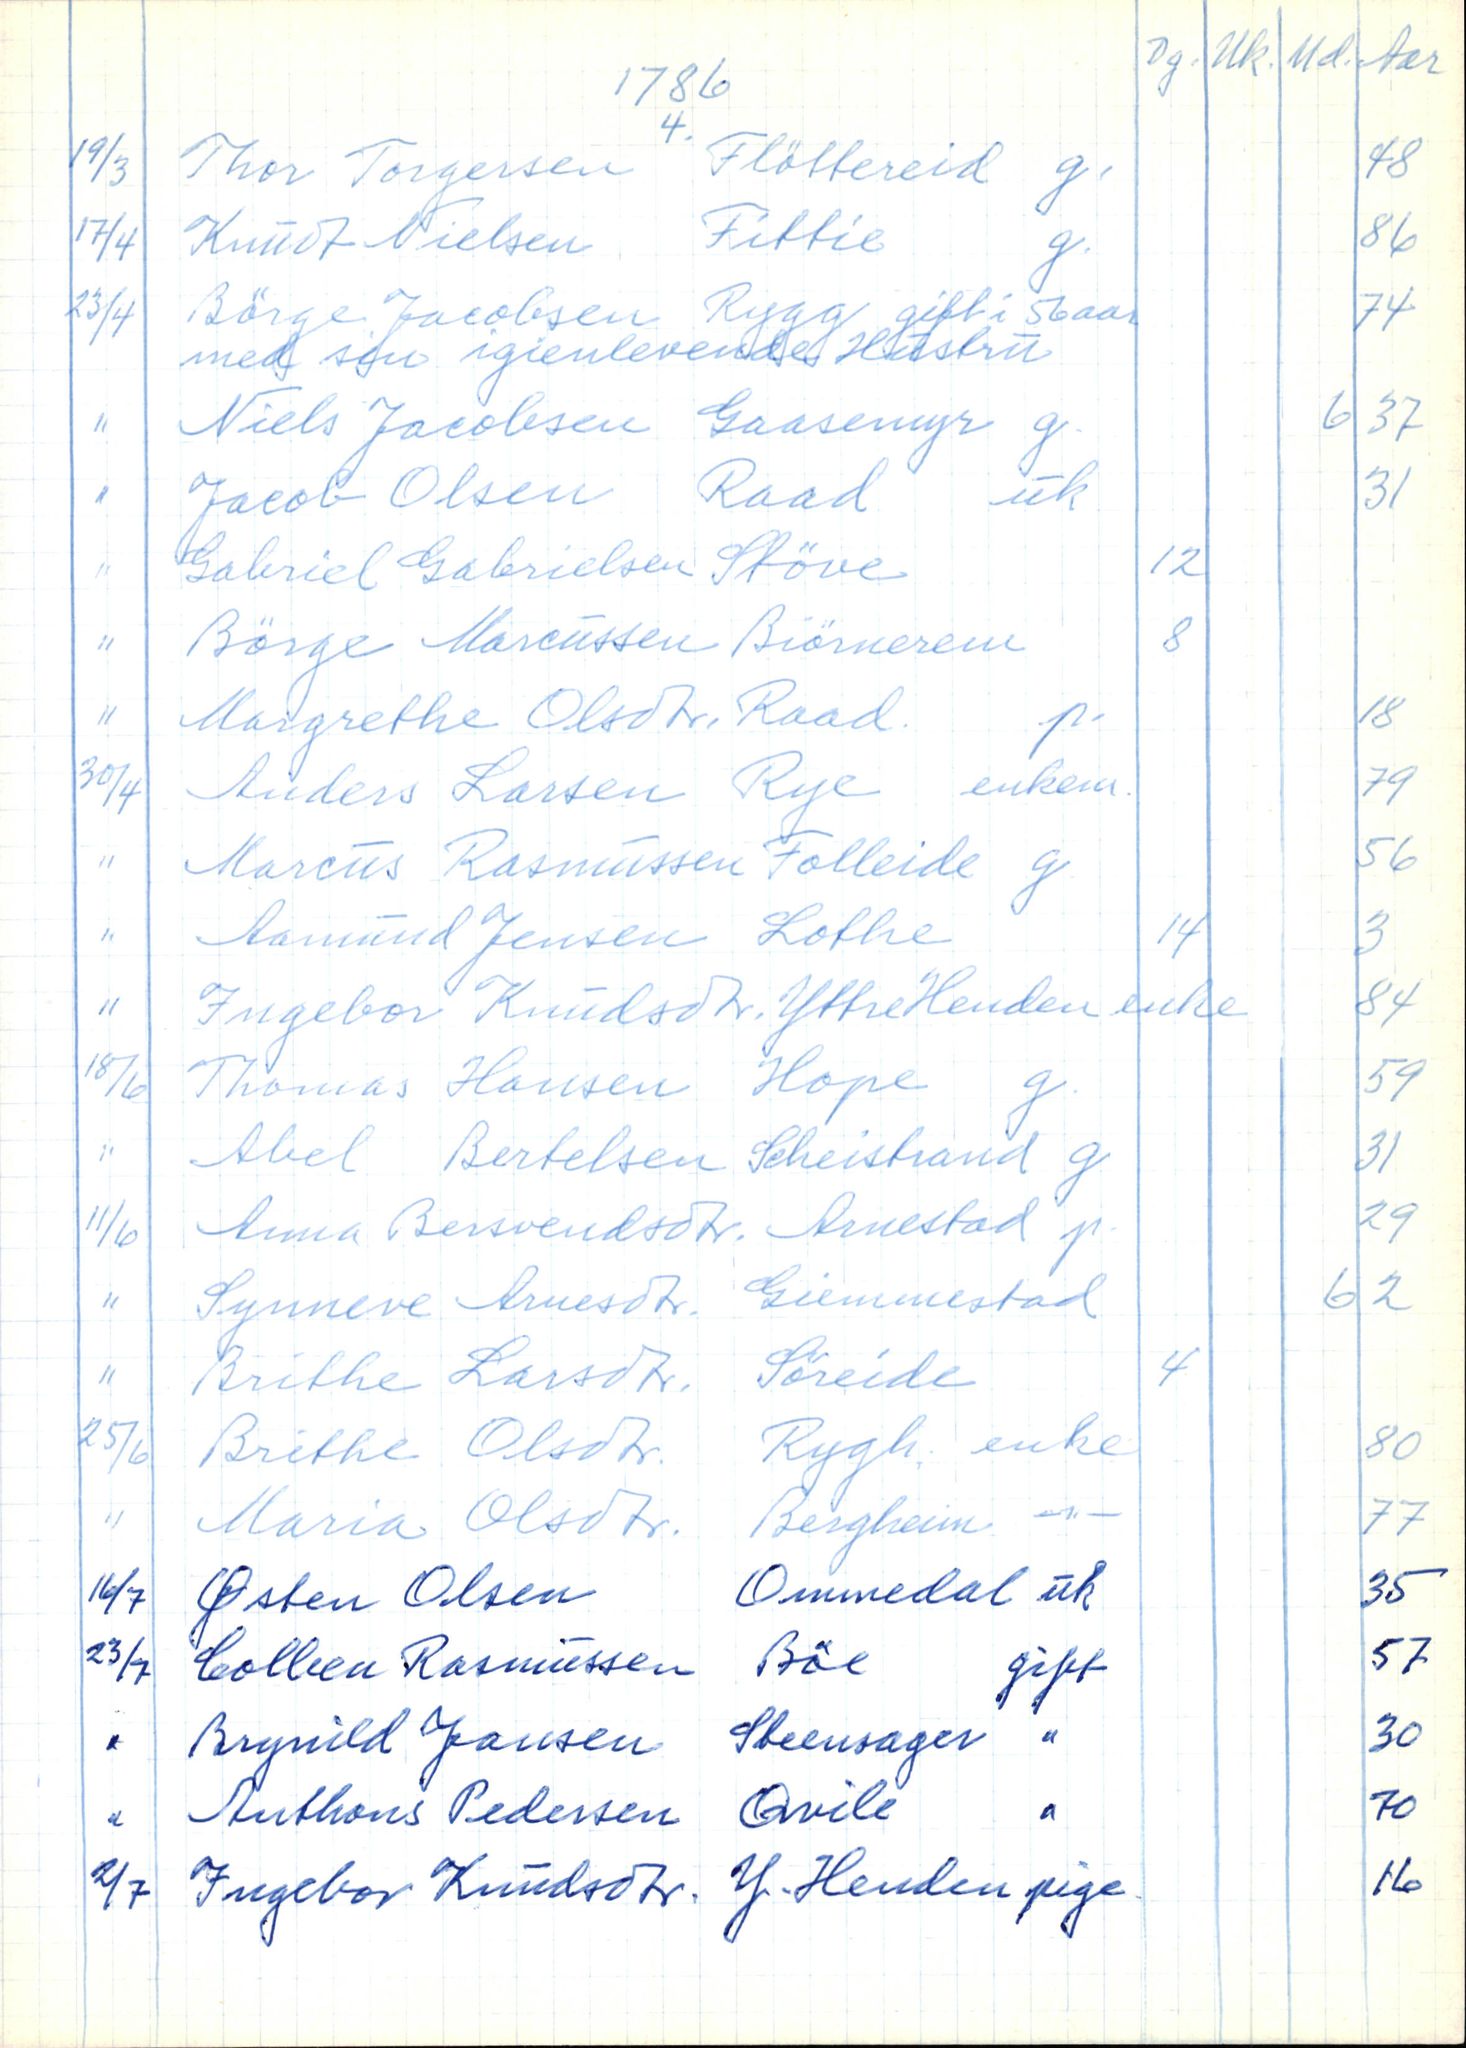 Dg. Uk. Md. Aar
1786
4.
19/3 Thor Torgersen Flöttereid g. 48
17/4 Knudt Nielsen Fittie g. 86
23/4 Börge Jacobsen Rygg gift i 56 aar 74
med sin igienlevende Hustru
" Niels Jacobsen Gaasemyr g. 6 37
" Jacob Olsen Raad uk 31
" Gabriel Gabrielsen Stöve 12
" Börge Marcussen Biörnerem 8
" Margrethe Olsdtr. Raad. p. 18
30/4 Anders Larsen Rye enkem. 79
" Marcus Rasmussen Folleide g 56
" Aamund Jensen Lothe 14 3
" Ingebor Knudsdtr. Yttre Henden enke 84
18/6 Thomas Hansen Hope g. 59
" Abel Bertelsen Scheistrand g 31
11/6 Anna Bersvendsdtr. Arnestad p. 29
" Synneve Arnesdtr. Giemmestad 6 2
" Brithe Larsdtr. Söreide 4
25/6 Brithe Olsdtr. Rygh. enke 80
" Maria Olsdtr. Bergheim —"— 77
16/7 Østen Olsen Ommedal uk 35
23/7 Colleen Rasmussen Böe gift 57
" Brynild Jansen Steensager " 30
" Anthons Pedersen Qvile " 70
2/7 Ingebor Knudsdtr. Y. Henden pige 16